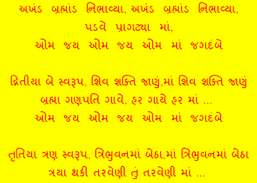 અખંડ બ્રહ્માંડ નિભાવ્યા, અખંડ બ્રહ્માંડ નિભાવ્યા,
પડવે પ્રાગટ્યા માં,
ઓમ જય ઓમ જય ઓમ માં જગદંબે
દ્રિતીયા બે સ્વરૂપ, શિવ શક્તિ જાણું,માં શિવ શક્તિ જાણું
બ્રહ્મા ગણપતિ ગાવે, હર ગાયે હર માં ...
ઓમ જય ઓમ જય ઓમ માં જગદંબે
તૃતિયા ત્રણ સ્વરૂપ, ત્રિભુવનમાં બેઠા,માં ત્રિભુવનમાં બેઠા
ત્રયા થકી તરવેણી તું તરવેણી માં ...